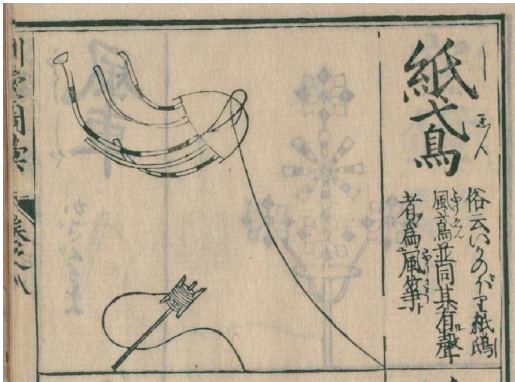 紙鳶
しゑん
俗云いかのぼり紙鴟
風鳶並同其有聲
者爲風箏